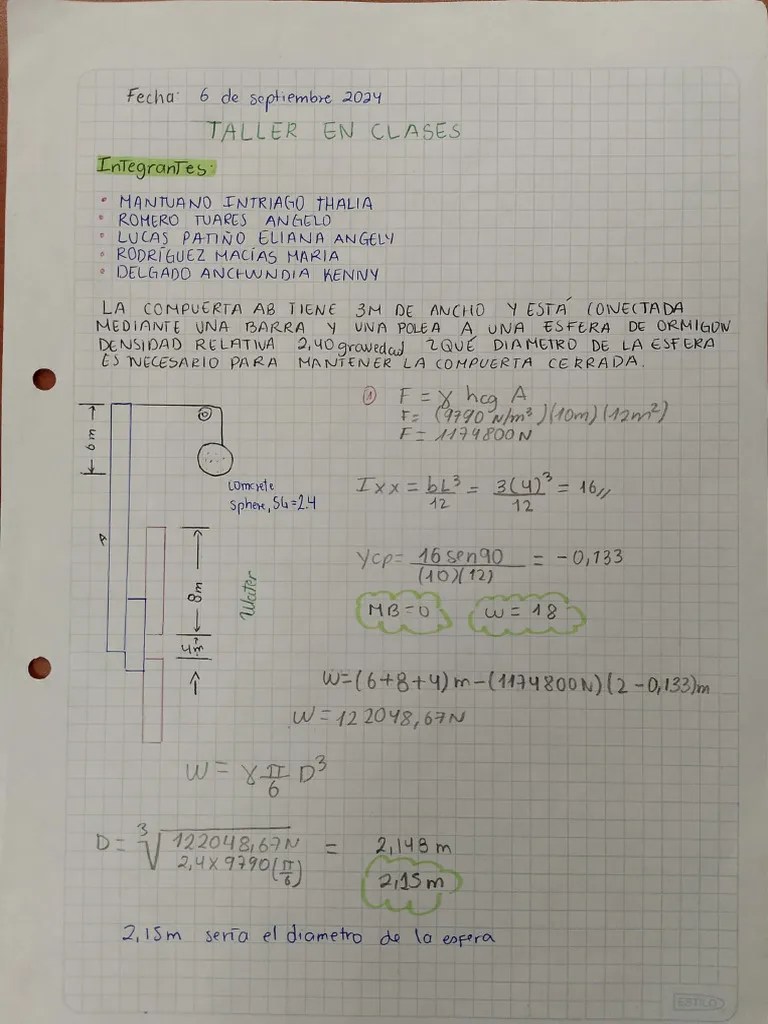 Fecha: 6 de septiembre 2024
TALLER EN CLASES
Integrantes:
• MANTUANO INTRIAGO THALIA
• ROMERO TUARES ANGELO
• LUCAS PATIÑO ELIANA ANGELY
• RODRÍGUEZ MACÍAS MARIA
• DELGADO ANCHUNDIA KENNY
LA COMPUERTA AB TIENE 3M DE ANCHO Y ESTÁ CONECTADA
MEDIANTE UNA BARRA Y UNA POLEA A UNA ESFERA DE ORMIGON
DENSIDAD RELATIVA 2,40 gravedad ¿QUÉ DIAMETRO DE LA ESFERA
ES NECESARIO PARA MANTENER LA COMPUERTA CERRADA.
① F = γ hcg A
F = (9790 N/m³)(10m)(12m²)
F = 1174800N
6 m
comcrete
sphere, SG=2.4
Ixx = bL³/12 = 3(4)³/12 = 16,,
A
8m
Water
4m
Ycp = 16 sen90/(10)(12) = -0,133
MB=0 W = 18
W=(6+8+4)m-(1174800N)(2-0,133)m
W = 122048,67N
W = γ π/6 D³
D = ³√122048,67N/2,4x9790(π/6) = 2,148 m
2,15m
2,15m sería el diametro de la esfera
ESTILO